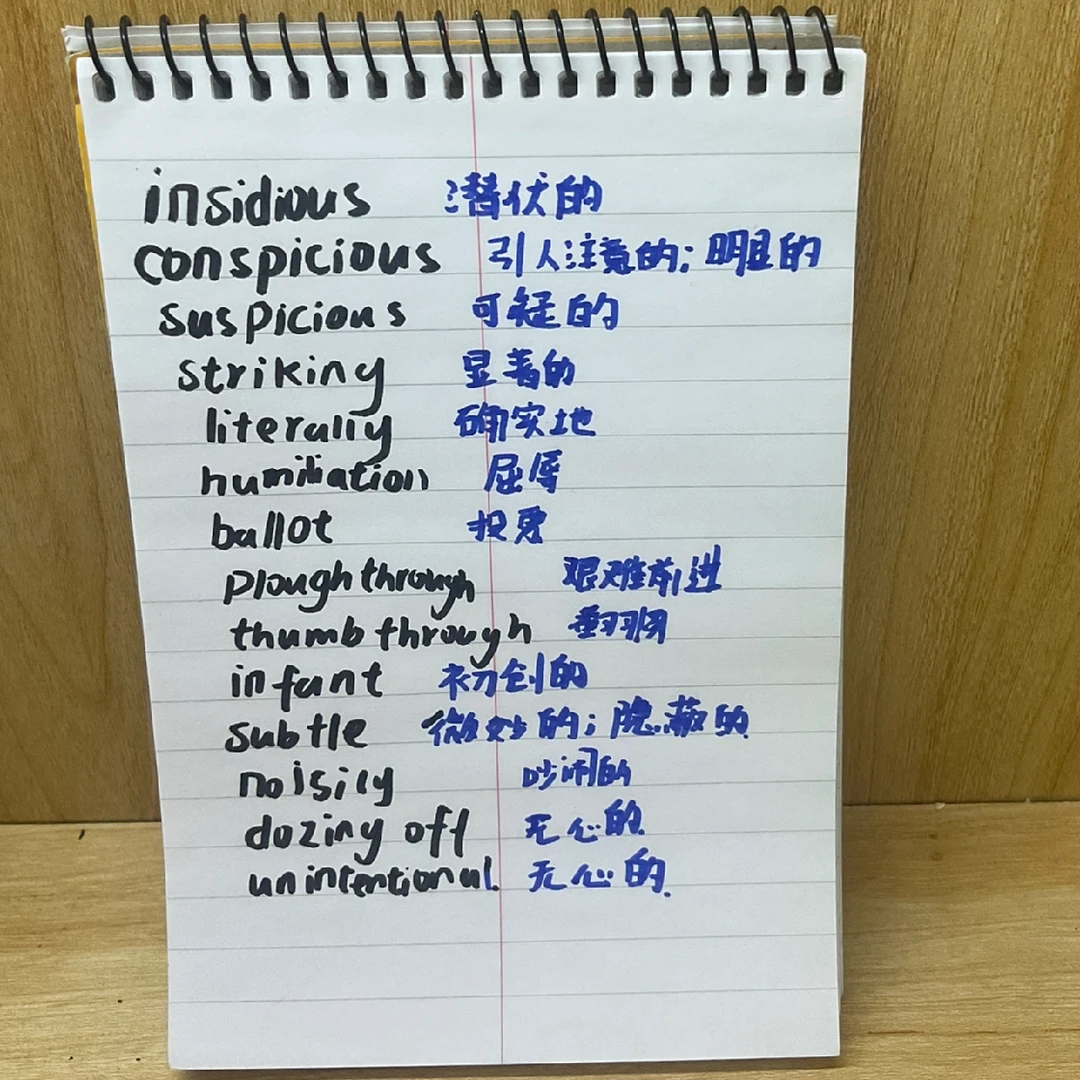 insidious 潜伏的
conspicious 引人注意的；明显的
suspicious 可疑的
striking 显著的
literally 确实地
humiliation 屈辱
ballot 投票
plough through 艰难前进
thumb through 翻阅
infant 初创的
subtle 微妙的；隐蔽的
noisily 吵闹的
dozing off 无心的
unintentional. 无心的.